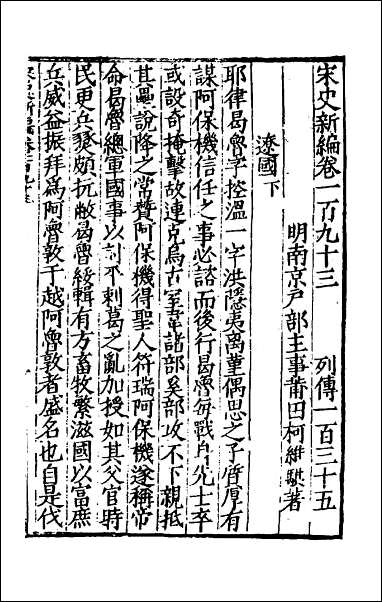 宋史新編卷一百九十三　列傳一百三十五
明南京戶部主事莆田柯維騏著
遼國下
耶律曷魯字控溫一字洪隱夷离菫偶思之子質厚有
謀阿保機信任之事必諮而後行曷魯每戰身先士卒
或設奇掩擊故連克烏古室韋諸部奚部攻不下親抵
其壘說降之常贊阿保機得聖人符瑞阿保機遂稱帝
命曷魯總軍國事以討不剌葛之亂加授如其父官時
民更兵㷼頗抗敝曷魯綏輯有方畜牧繁滋國以富庶
兵威益振拜爲阿魯敦于越阿魯敦者盛名也自是伐